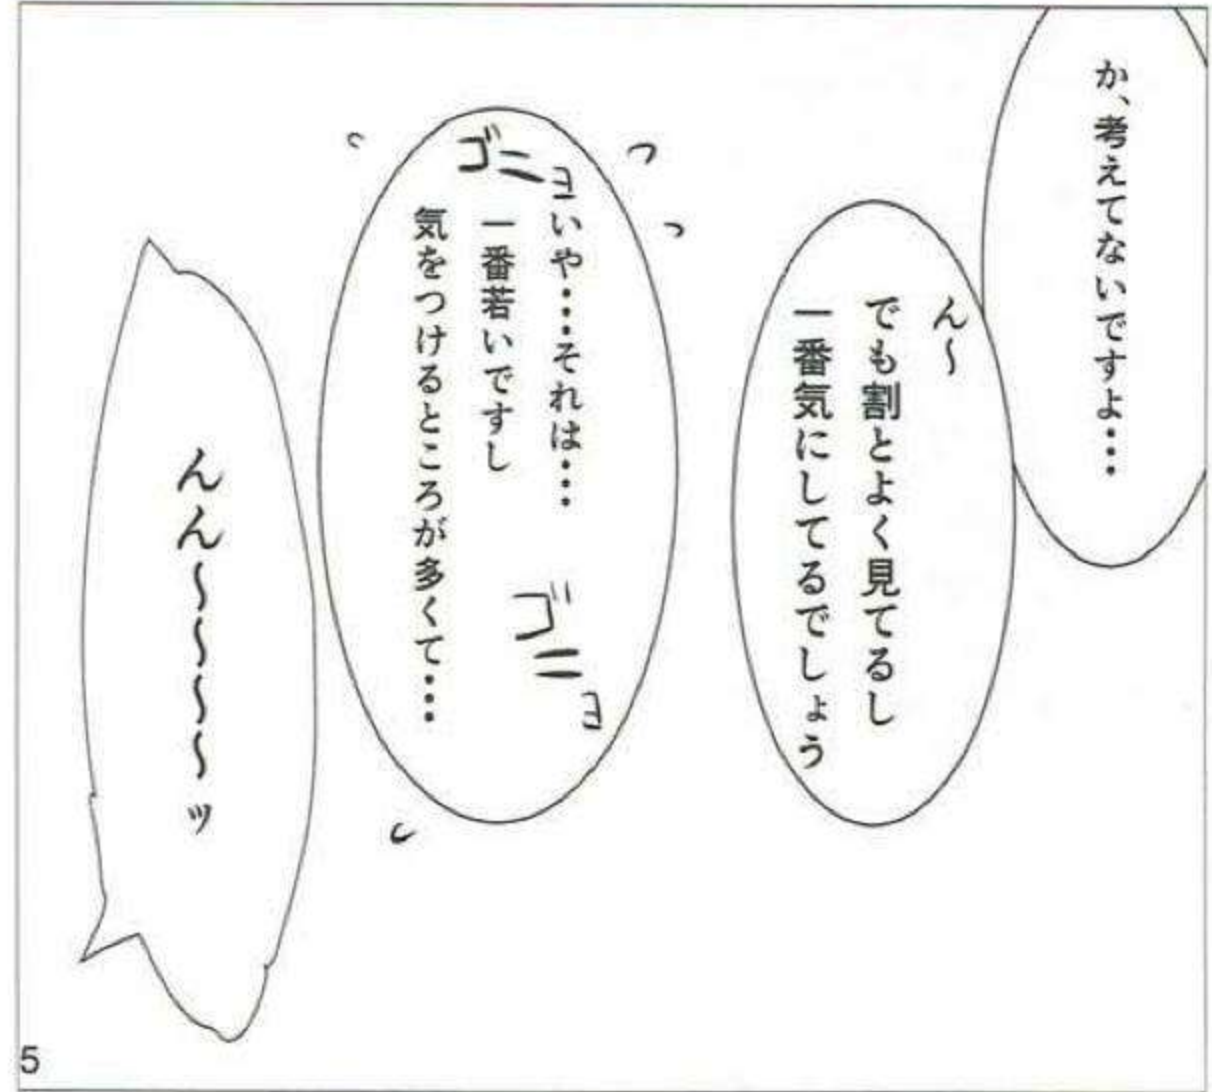 か、考えてないですよ・・・
ん〜
でも割とよく見てるし
一番気にしてるでしょう
ゴニョ
いや・・・それは・・・
一番若いですし
気をつけるところが多くて・・・
ゴニョ
んん〜〜〜〜ッ
5